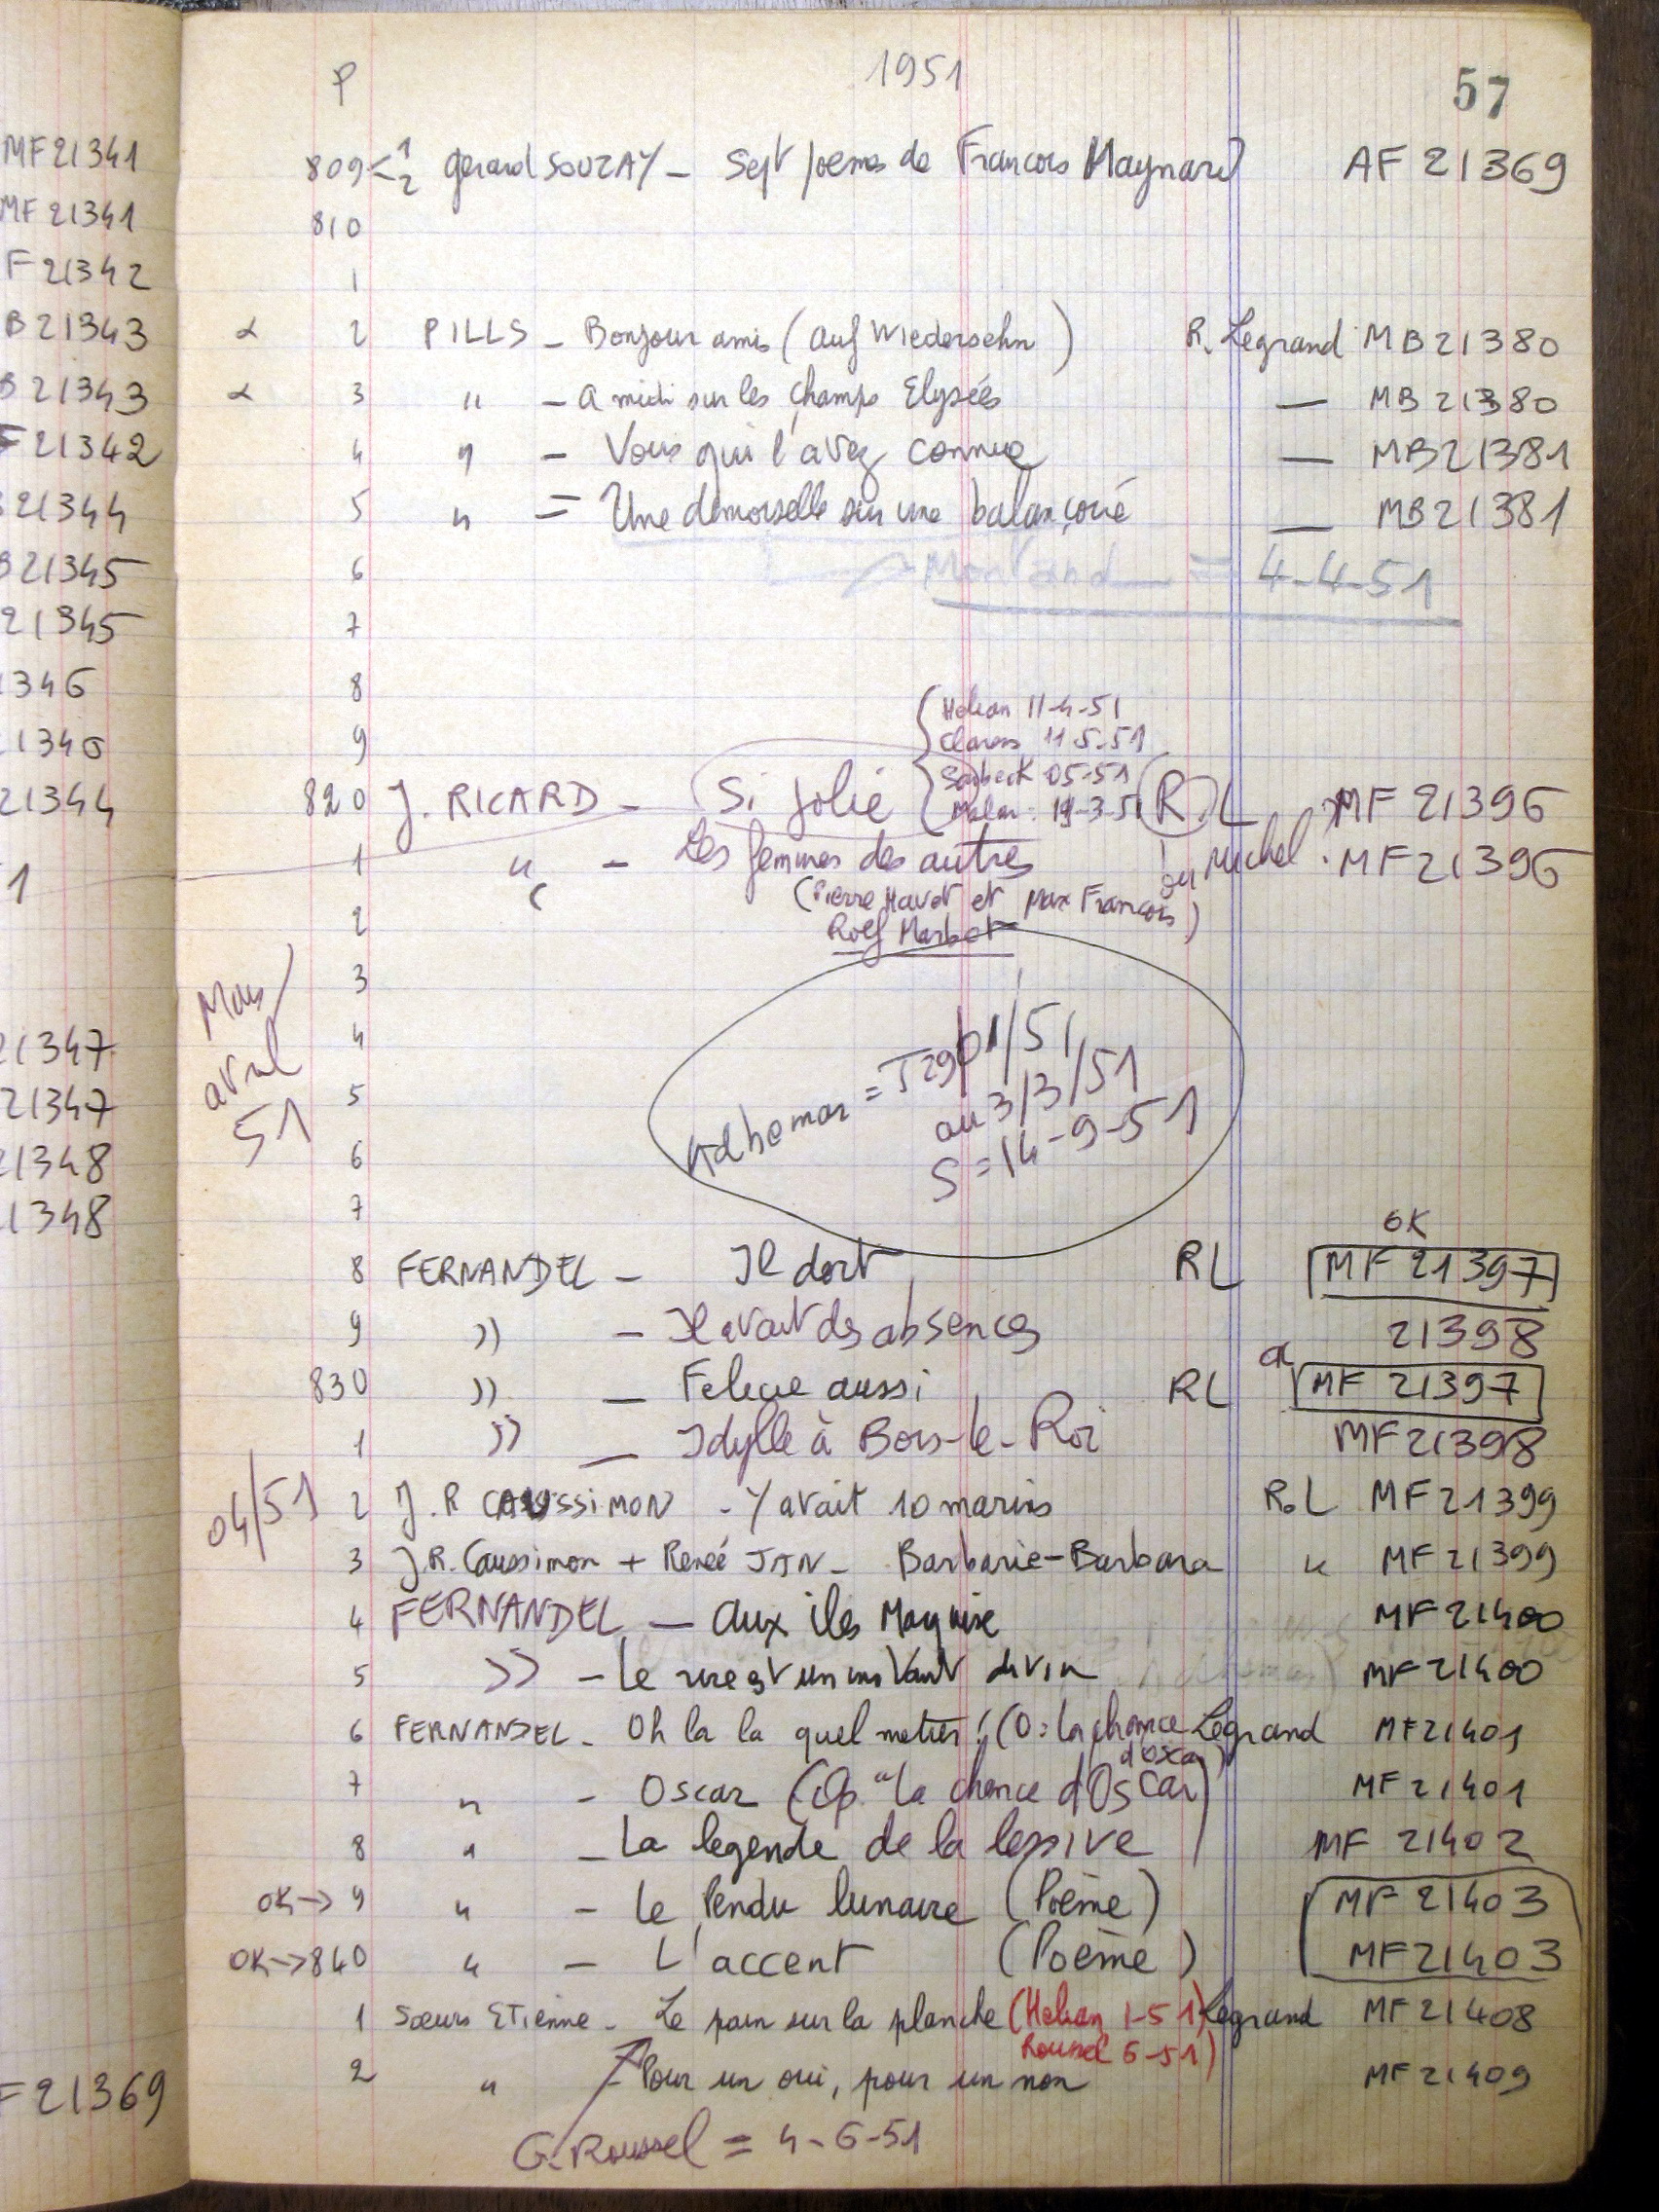 P 1951 57
MF21341
809 < 1 2 Gérard SOUZAY - Sept poemes de Francois Maynard AF 21369
MF21341
810
F21342
1
B21343
α 2 PILLS - Bonjour amis (auf Wiedersehn) R. Legrand MB21380
B21343
α 3 " - A midi sur les champs Elysées — MB21380
F21342
4 " - Vous qui l'avez connue — MB21381
21344
5 " = Une demoiselle sur une balançoire — MB21381
B21345
6 Montand = 4-4-51
21345
7
346
8
Helian 11-4-51
1346
9 Clarens 11-5-51
Sarbeck 05-51
21344
820 J. RICARD - Si jolie R.L MF 21396
Malar: 19-3-51
1
1 " - Les femmes des autres ou Michel MF21396
(Pierre Havet et Max Francois)
2 Rolf Marbot
3
Mars/
avril
51
21347
4 Adhemar = T29 01/51
21347
5 au 3/3/51
21348
6 S=14-9-51
21348
7
OK
8 FERNANDEL - Il dort RL MF 21397
9 )) - Il avait des absences 21398
OK
830 )) - Félicie aussi RL MF 21397
1 )) - Idylle à Bois-le-Roi MF21398
04/51
2 J.R CAUSSIMON - Y avait 10 marins R.L MF21399
3 J.R. Caussimon + Reneé JAN - Barbarie-Barbara " MF21399
4 FERNANDEL - Aux iles Marquise MF21400
5 )) - Le rire est un instant divin MF21400
6 FERNANDEL - Oh la la quel metier! (O: la chance d'oscar) Legrand MF21401
7 " - Oscar (Op. "la chance d'Oscar) MF21401
8 " - La legende de la lessive MF 21402
OK→ 9 " - Le Pendu lunaire (Poème) MF 21403
OK→ 840 " - L'accent (Poème) MF21403
1 Sœurs ETienne - Le pain sur la planche (Helian 1-51) Legrand MF21408
Roussel 6-51)
F21369
2 " - Pour un oui, pour un non MF21409
G. Roussel = 4-6-51